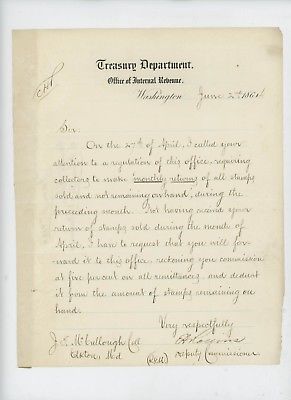 Treasury Department.
Office of Internal Revenue.
Washington June 2nd 1864
Sir.
On the 27th of April, I called your
attention to a regulation of this office, requiring
collectors to make "monthly returns of all stamps
sold and not remaining on hand", during the
preceeding month. Not having received your
return of stamps sold during the month of
April, I have to request that you will for-
ward it to this office, reckoning your commission
at five percent on all remittances, and deduct
it from the amount of stamps remaining on
hand.
Very respectfully
Deputy Commissioner
J. S. McCullough Coll
Elkton, Md